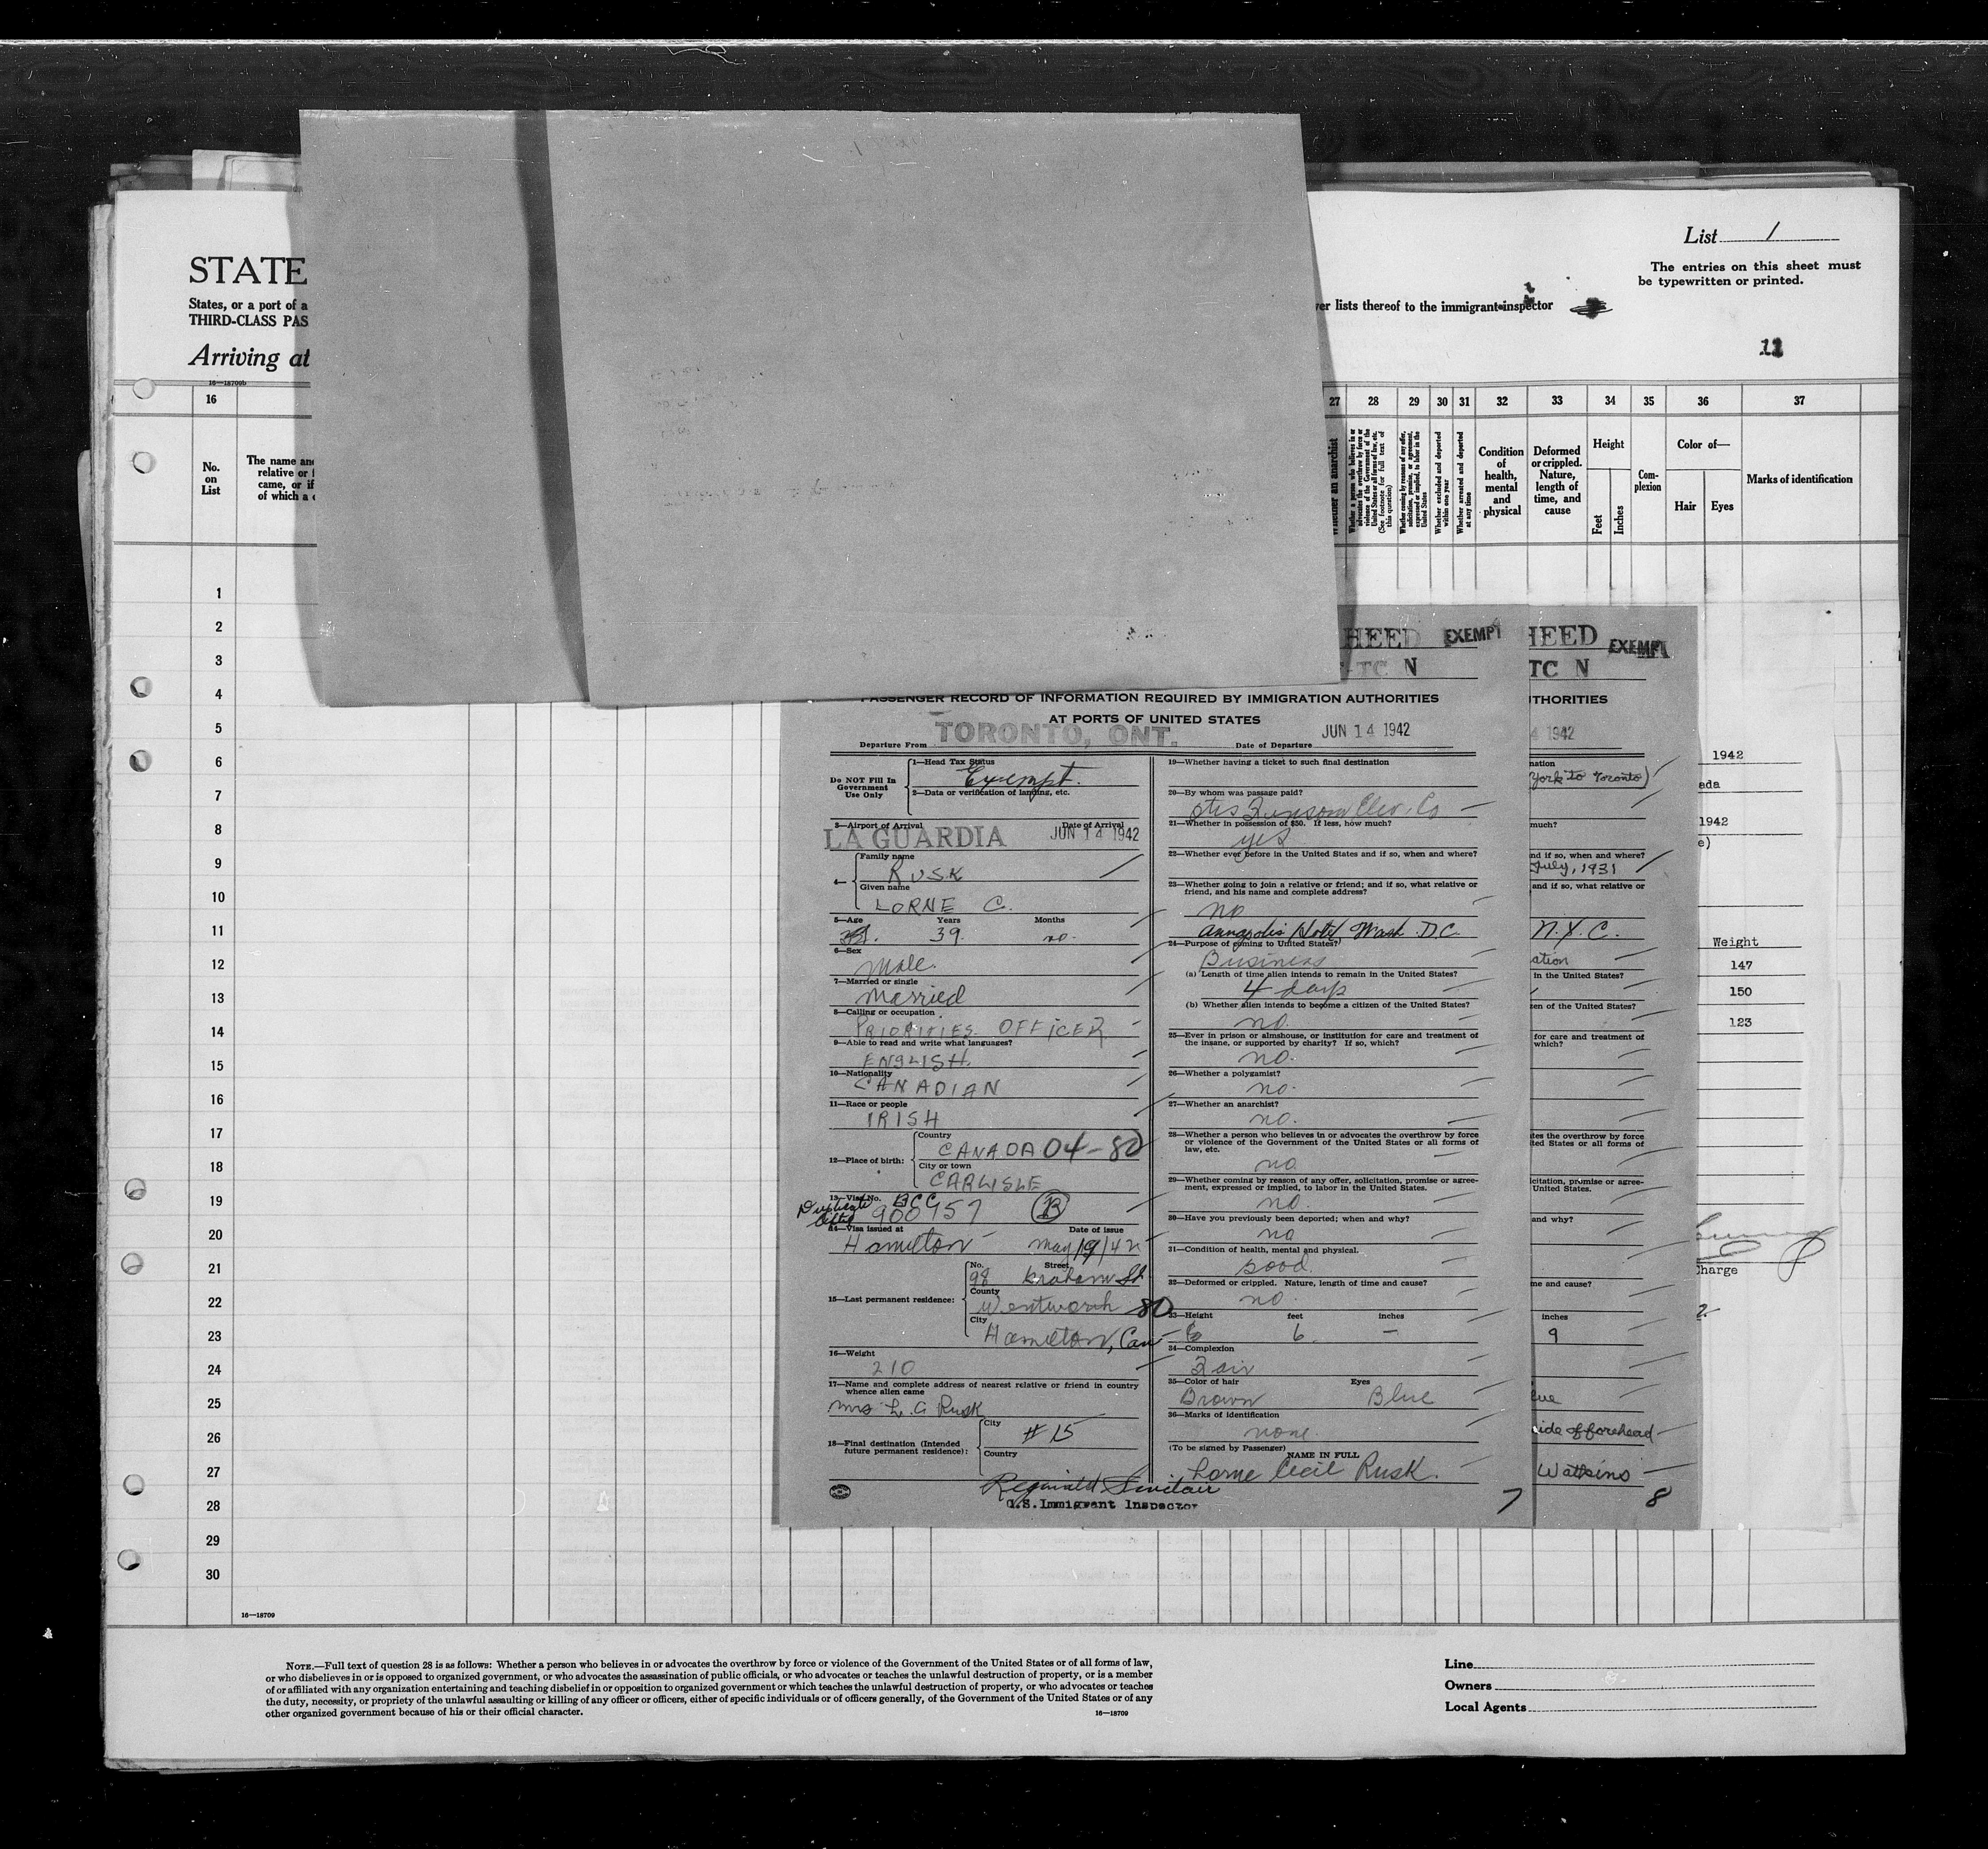 List 1
The entries on this sheet must
be typewritten or printed.
STATE
States, or a port of a
THIRD-CLASS PAS
ver lists thereof to the immigrant inspector
Arriving at
16—18709b
16
27 28 29 30 31 32 33 34 35 36 37
No.
on
List
The name and
relative or
came, or if
of which a
Whether an anarchist
Whether a person who believes in or
advocates the overthrow by force or
violence of the Government of the
United States or all forms of law, etc.
(See footnote for full text of
this question)
Whether coming by reason of any offer,
solicitation, promise, or agreement,
expressed or implied, to labor in the
United States
Whether excluded and deported
within one year
Whether arrested and deported
at any time
Condition
of
health,
mental
and
physical
Deformed
or crippled.
Nature,
length of
time, and
cause
Height
Feet
Inches
Com-
plexion
Color of—
Hair
Eyes
Marks of identification
1
2
3
4
5
6
7
8
9
10
11
12
13
14
15
16
17
18
19
20
21
22
23
24
25
26
27
28
29
30
HEED EXEMPT
TC N
PASSENGER RECORD OF INFORMATION REQUIRED BY IMMIGRATION AUTHORITIES
AT PORTS OF UNITED STATES
Departure From TORONTO, ONT. Date of Departure JUN 14 1942
Do NOT Fill In
Government
Use Only
1—Head Tax Status
Exempt.
2—Data or verification of landing, etc.
3—Airport of Arrival Date of Arrival
LA GUARDIA JUN 14 1942
4—
Family name
RUSK
Given name
LORNE C.
5—Age Years Months
39. no.
6—Sex
Male.
7—Married or single
Married
8—Calling or occupation
PRIORITIES OFFICER
9—Able to read and write what languages?
ENGLISH.
10—Nationality
CANADIAN
11—Race or people
IRISH
12—Place of birth:
Country
CANADA 04-80
City or town
CARLISLE
13—Visa No. BCC
Duplicate
lifted
900957 B
14—Visa issued at Date of issue
Hamilton May/19/42
15—Last permanent residence:
No. Street
98 Graham St
County
Wentworth 80
City
Hamilton, Can
16—Weight
210
17—Name and complete address of nearest relative or friend in country
whence alien came
Mrs L. C. Rusk
18—Final destination (Intended
future permanent residence):
City
#15
Country
Reginald Sinclair
U.S. Immigrant Inspector
19—Whether having a ticket to such final destination
20—By whom was passage paid?
Otis Elev. Co
21—Whether in possession of $50. If less, how much?
yes
22—Whether ever before in the United States and if so, when and where?
23—Whether going to join a relative or friend; and if so, what relative or
friend, and his name and complete address?
no
Annapolis Hotel Wash. D.C.
24—Purpose of coming to United States?
Business
(a) Length of time alien intends to remain in the United States?
4 days
(b) Whether alien intends to become a citizen of the United States?
no.
25—Ever in prison or almshouse, or institution for care and treatment of
the insane, or supported by charity? If so, which?
no.
26—Whether a polygamist?
no.
27—Whether an anarchist?
no.
28—Whether a person who believes in or advocates the overthrow by force
or violence of the Government of the United States or all forms of
law, etc.
no
29—Whether coming by reason of any offer, solicitation, promise or agree-
ment, expressed or implied, to labor in the United States.
no.
30—Have you previously been deported; when and why?
no
31—Condition of health, mental and physical.
good.
32—Deformed or crippled. Nature, length of time and cause?
no.
33—Height feet inches
6 –
34—Complexion
Fair
35—Color of hair Eyes
Brown Blue
36—Marks of identification
none.
(To be signed by Passenger)
NAME IN FULL
Lorne Cecil Rusk.
7
HEED EXEMPT
TC N
THORITIES
4 1942
nation
York to Toronto)
much?
nd if so, when and where?
July, 1931
and if so, what relative or
N.Y.C.
ation
in the United States?
zen of the United States?
for care and treatment of
which?
tes the overthrow by force
ted States or all forms of
icitation, promise or agree-
United States.
and why?
me and cause?
inches
9
lue
ide of forehead
Watkins
8
1942
ada
1942
e)
Weight
147
150
123
Charge
16—18709
NOTE.—Full text of question 28 is as follows: Whether a person who believes in or advocates the overthrow by force or violence of the Government of the United States or of all forms of law,
or who disbelieves in or is opposed to organized government, or who advocates the assassination of public officials, or who advocates or teaches the unlawful destruction of property, or is a member
of or affiliated with any organization entertaining and teaching disbelief in or opposition to organized government or which teaches the unlawful destruction of property, or who advocates or teaches
the duty, necessity, or propriety of the unlawful assaulting or killing of any officer or officers, either of specific individuals or of officers generally, of the Government of the United States or of any
other organized government because of his or their official character.
16—18709
Line
Owners
Local Agents